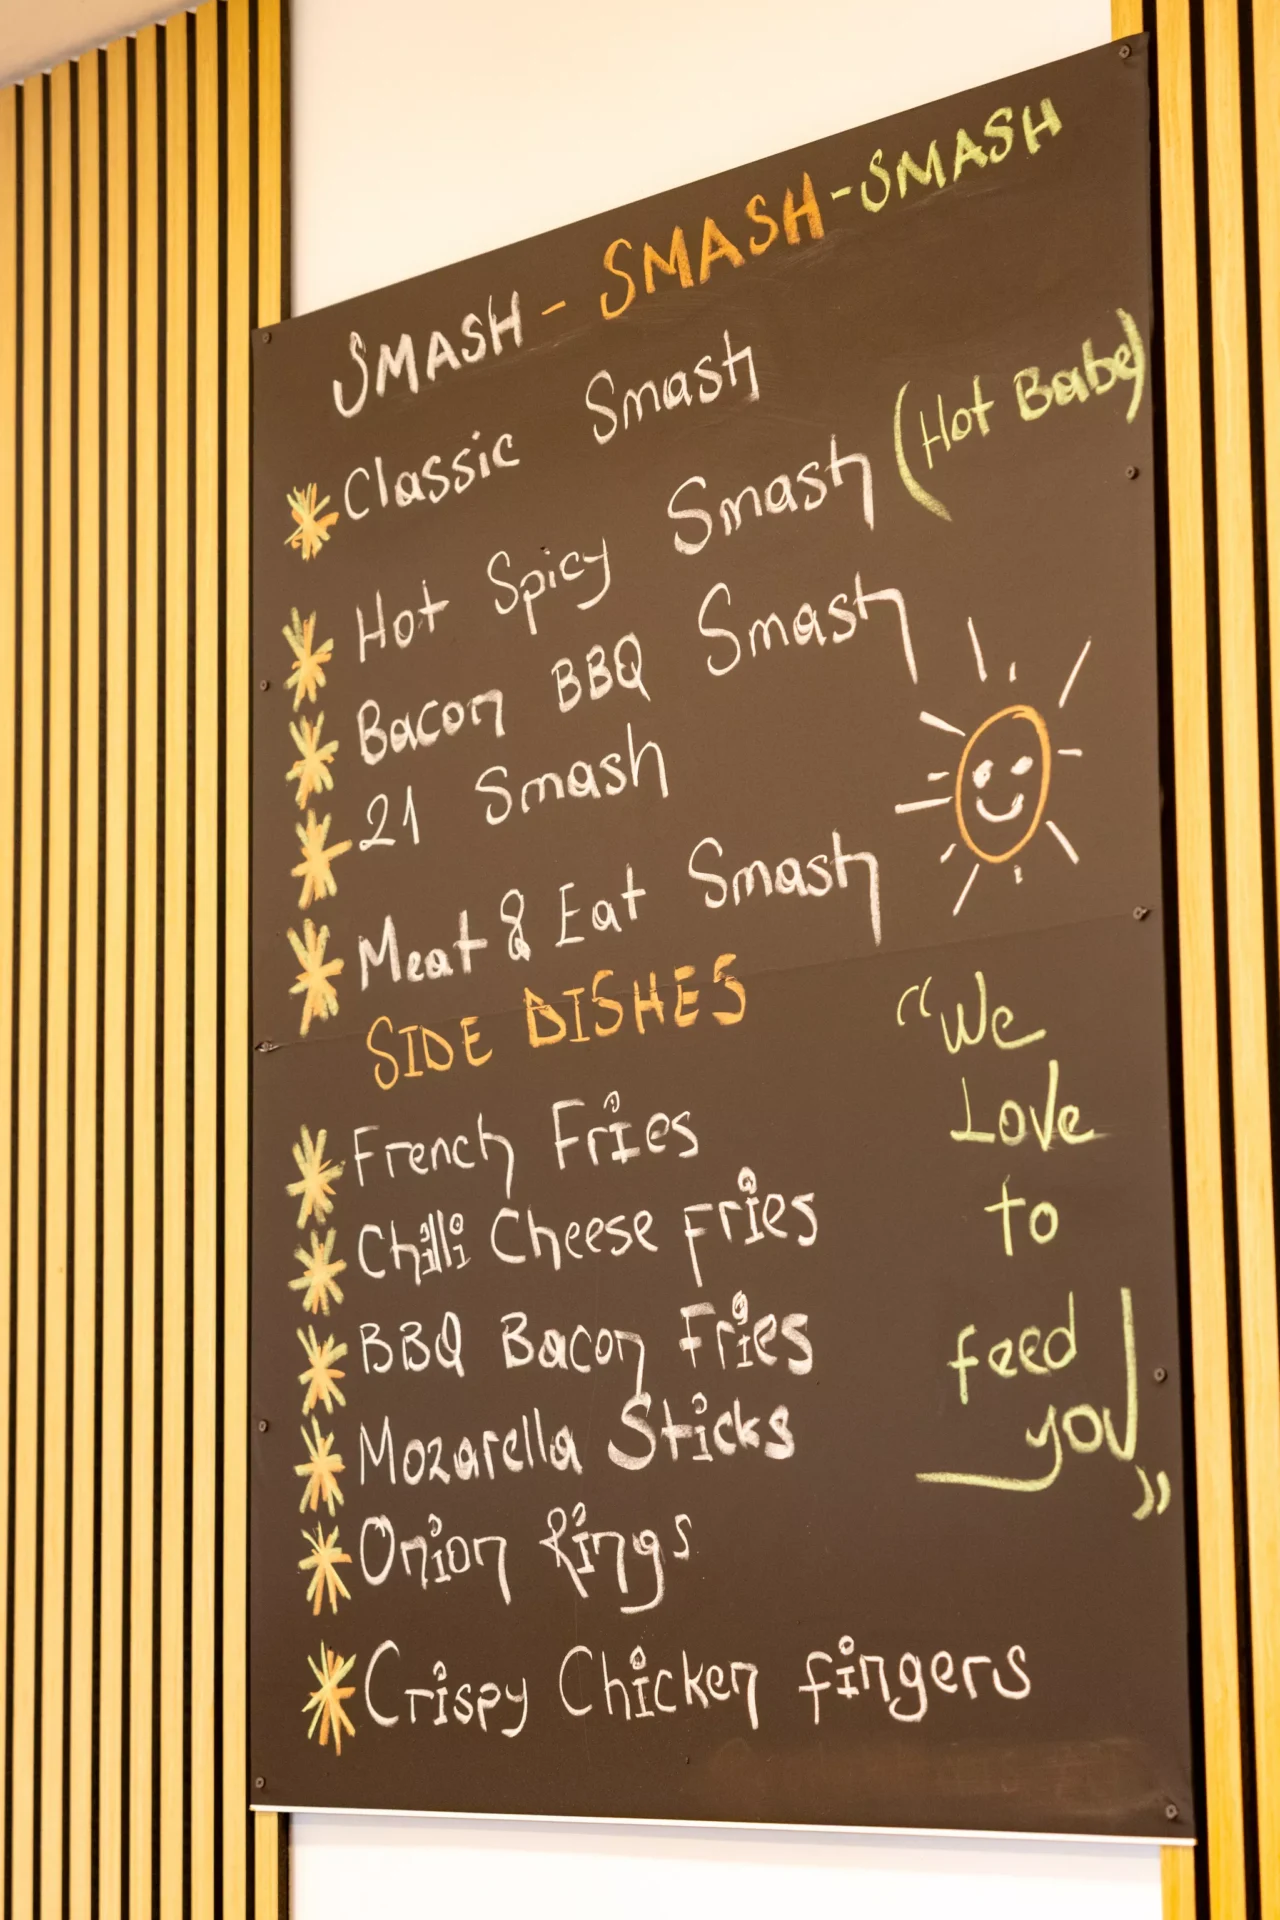 SMASH - SMASH - SMASH
Classic Smash
Hot Spicy Smash (Hot Babe)
Bacon BBQ Smash
21 Smash
Meat & Eat Smash
SIDE DISHES
French Fries
Chilli Cheese Fries
BBQ Bacon Fries
Mozarella Sticks
Onion Rings
Crispy Chicken fingers
“We
Love
to
feed
you”